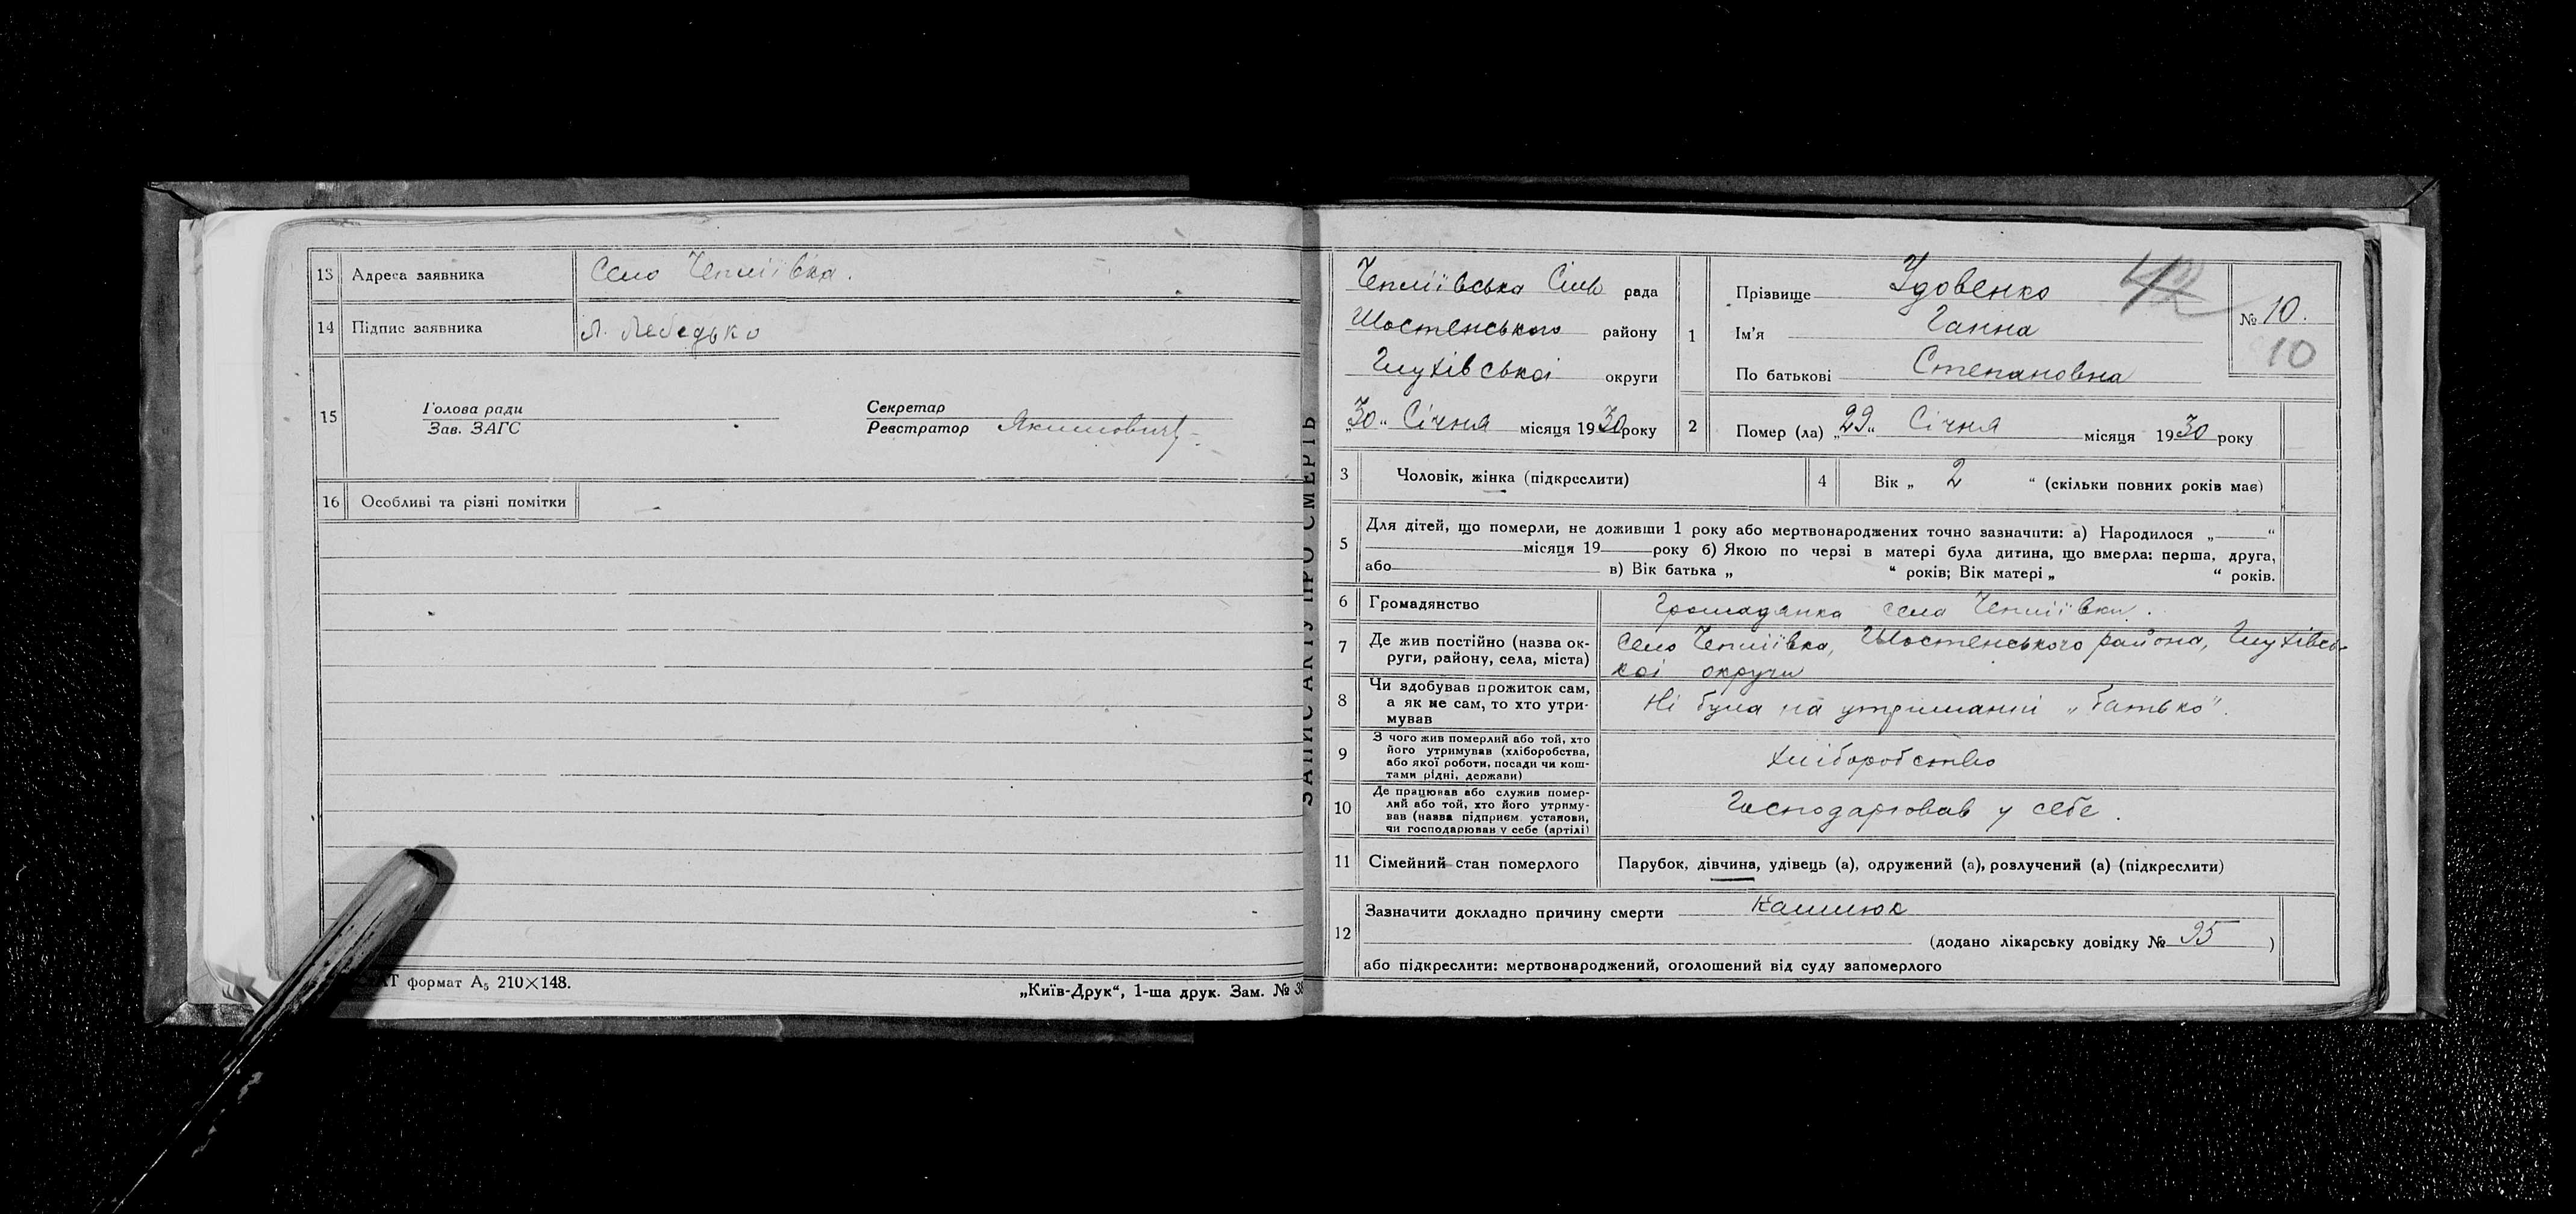 13 Адреса заявника Село Чепліївка.
14 Підпис заявника Л. Лебедько
15 Голова ради
Зав. ЗАГС
Секретар
Реєстратор Якимович
16 Особливі та різні помітки
формат А5 210×148.
„Київ-Друк“, 1-ша друк. Зам. № 38
ЗАПИС АКТУ ПРО СМЕРТЬ
Чепліївська Сіль рада
Шостенського району
Глухівської округи
„30“ Січня місяця 1930 року
1 Прізвище Удовенко
Ім'я Ганна
По батькові Степановна
42
№ 10.
10
2 Помер (ла) „29“ Січня місяця 1930 року
3 Чоловік, жінка (підкреслити)
4 Вік „ 2 “ (скільки повних років має)
5 Для дітей, що померли, не доживши 1 року або мертвонароджених точно зазначити: а) Народилося „ “
місяця 19 року б) Якою по черзі в матері була дитина, що вмерла: перша, друга,
або в) Вік батька „ “ років; Вік матері „ “ років.
6 Громадянство Громадянка села Чепліївки.
7 Де жив постійно (назва ок-
руги, району, села, міста)
Село Чепліївка, Шостенського района, Глухівсь-
кої округи
8 Чи здобував прожиток сам,
а як не сам, то хто утри-
мував
Ні була на утриманні „батько“.
9 З чого жив померлий або той, хто
його утримував (хліборобства,
або якої роботи, посади чи кош-
тами рідні, держави)
хліборобство
10 Де працював або служив помер-
лий або той, хто його утриму-
вав (назва підприєм. установи,
чи господарював у себе (артілі)
Господарював у себе.
11 Сімейний стан померлого Парубок, дівчина, удівець (а), одружений (а), розлучений (а) (підкреслити)
12 Зазначити докладно причину смерти Кашлюк
(додано лікарську довідку № 95 )
або підкреслити: мертвонароджений, оголошений від суду запомерлого